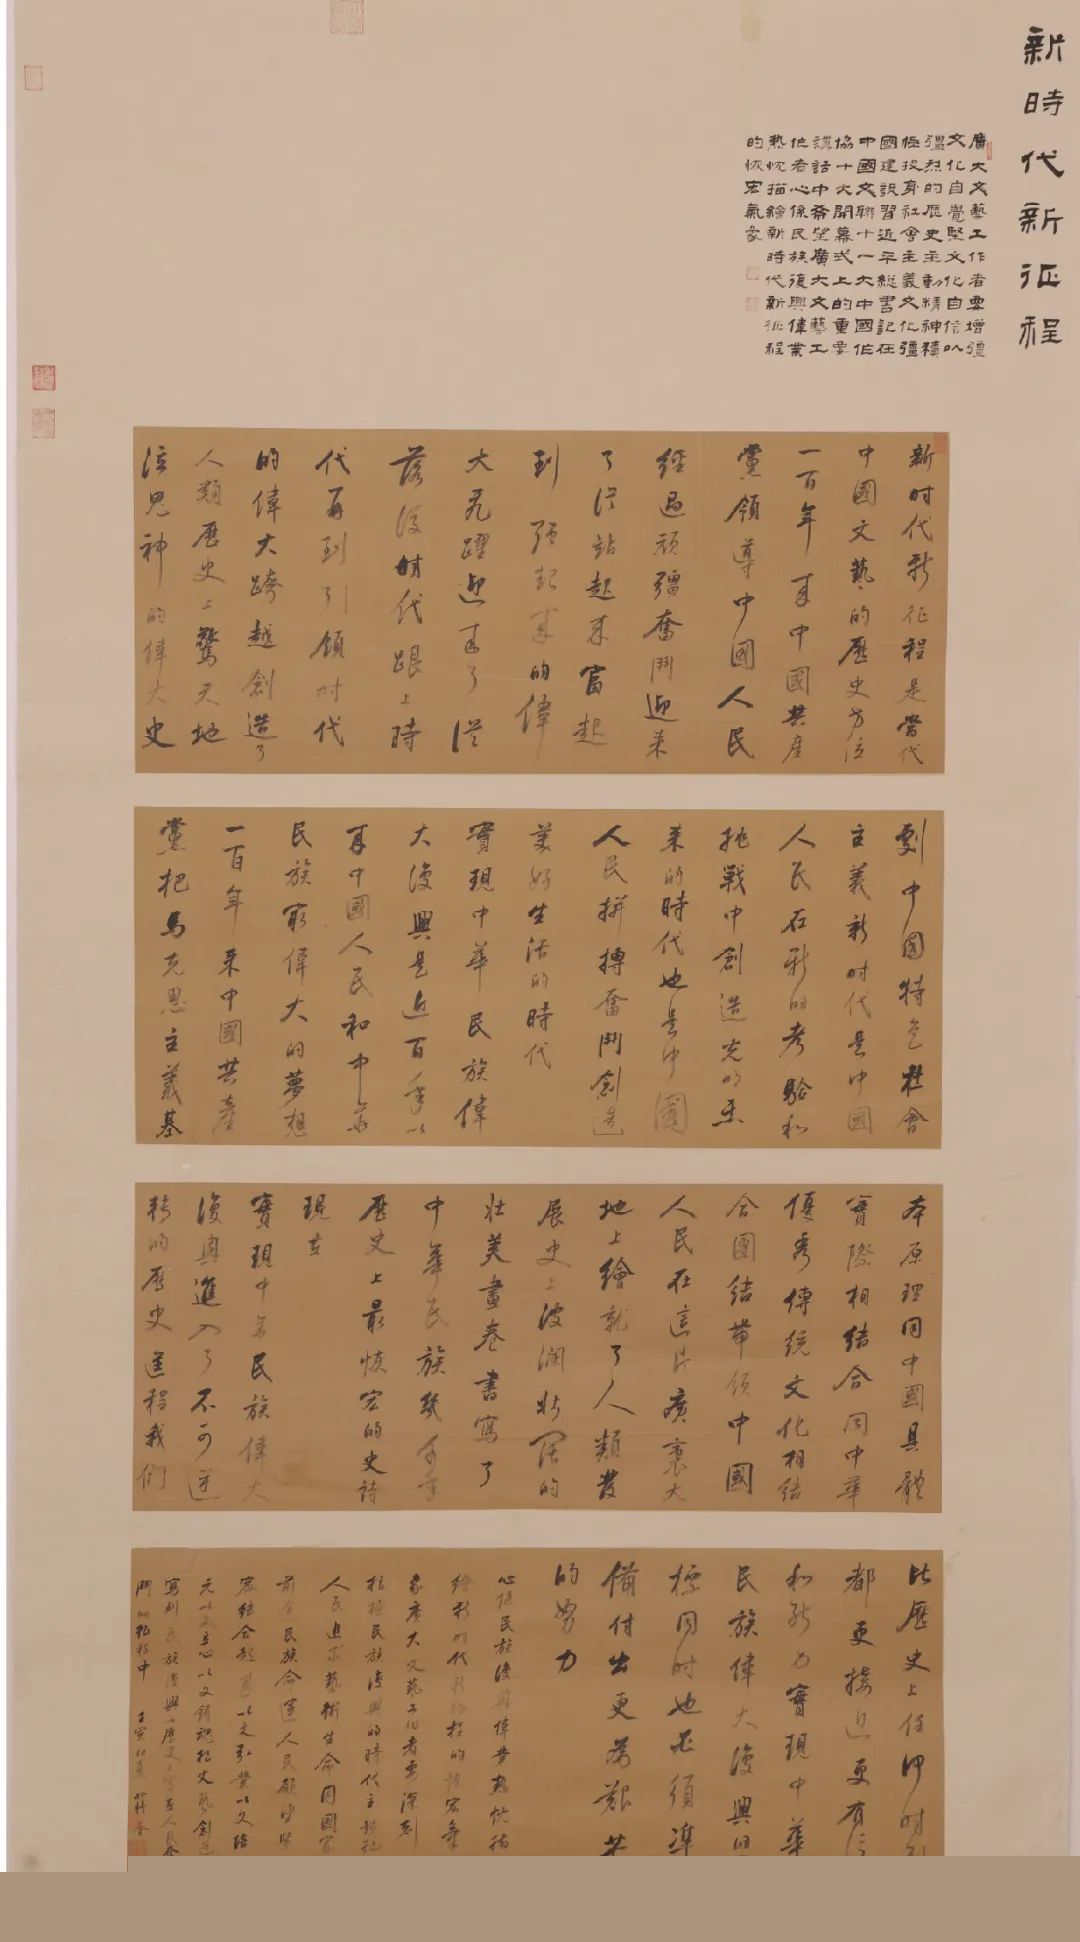 新時代新征程
廣大文藝工作者要增彊
文化自覺堅文化自信以
彊烈的歷史主動精神積
極投身社會主義文化彊
國建設習近平總書記在
中國文聯十一大中國作
協十大開幕式上的重要
講話中希望廣大文藝工
作者心係民族復興偉業
熱忱描繪新時代新征程
的恢宏氣象
新时代新征程是當代
中國文藝的歷史方位
一百年來中國共產
黨領導中國人民
經過頑彊奮鬥迎來
了從站起來富起
到强起來的偉
大飛躍迎來了從
落後时代跟上時
代再到引領时代
的偉大跨越創造了
人類歷史上驚天地
泣鬼神的偉大史
劇中國特色社會
主義新时代是中國
人民在新的考驗和
挑戰中創造光明未
來的時代也是中國
人民拼搏奮鬥創造
美好生活的時代
實現中華民族偉
大復興是近百年以
來中國人民和中華
民族最偉大的夢想
一百年來中國共產
黨把馬克思主義基
本原理同中國具體
實際相結合同中華
優秀傳統文化相結
合團結帶領中國
人民在這片廣袤大
地上繪就了人類發
展史上波瀾壯闊的
壯美畫卷書寫了
中華民族幾千年
歷史上最恢宏的史詩
現在
實現中華民族偉大
復興進入了不可逆
轉的歷史進程我們
比歷史上任何时
都更接近更有信
和能力實現中華
民族偉大復興的
標同时也必須準
備付出更為艱苦
的努力
心係民族復興偉業熱忱描
繪新时代新征程的恢宏氣
象廣大文藝工作者要深刻
把握民族復興的時代主題把
人民追求藝術生命同國家
前途民族命運人民願望緊
密結合起來以文弘業以文培
元以文立心以文鑄魂把文藝創造
寫到民族復興的歷史上寫在人民奮
鬥的征程中 壬寅初夏 蔣